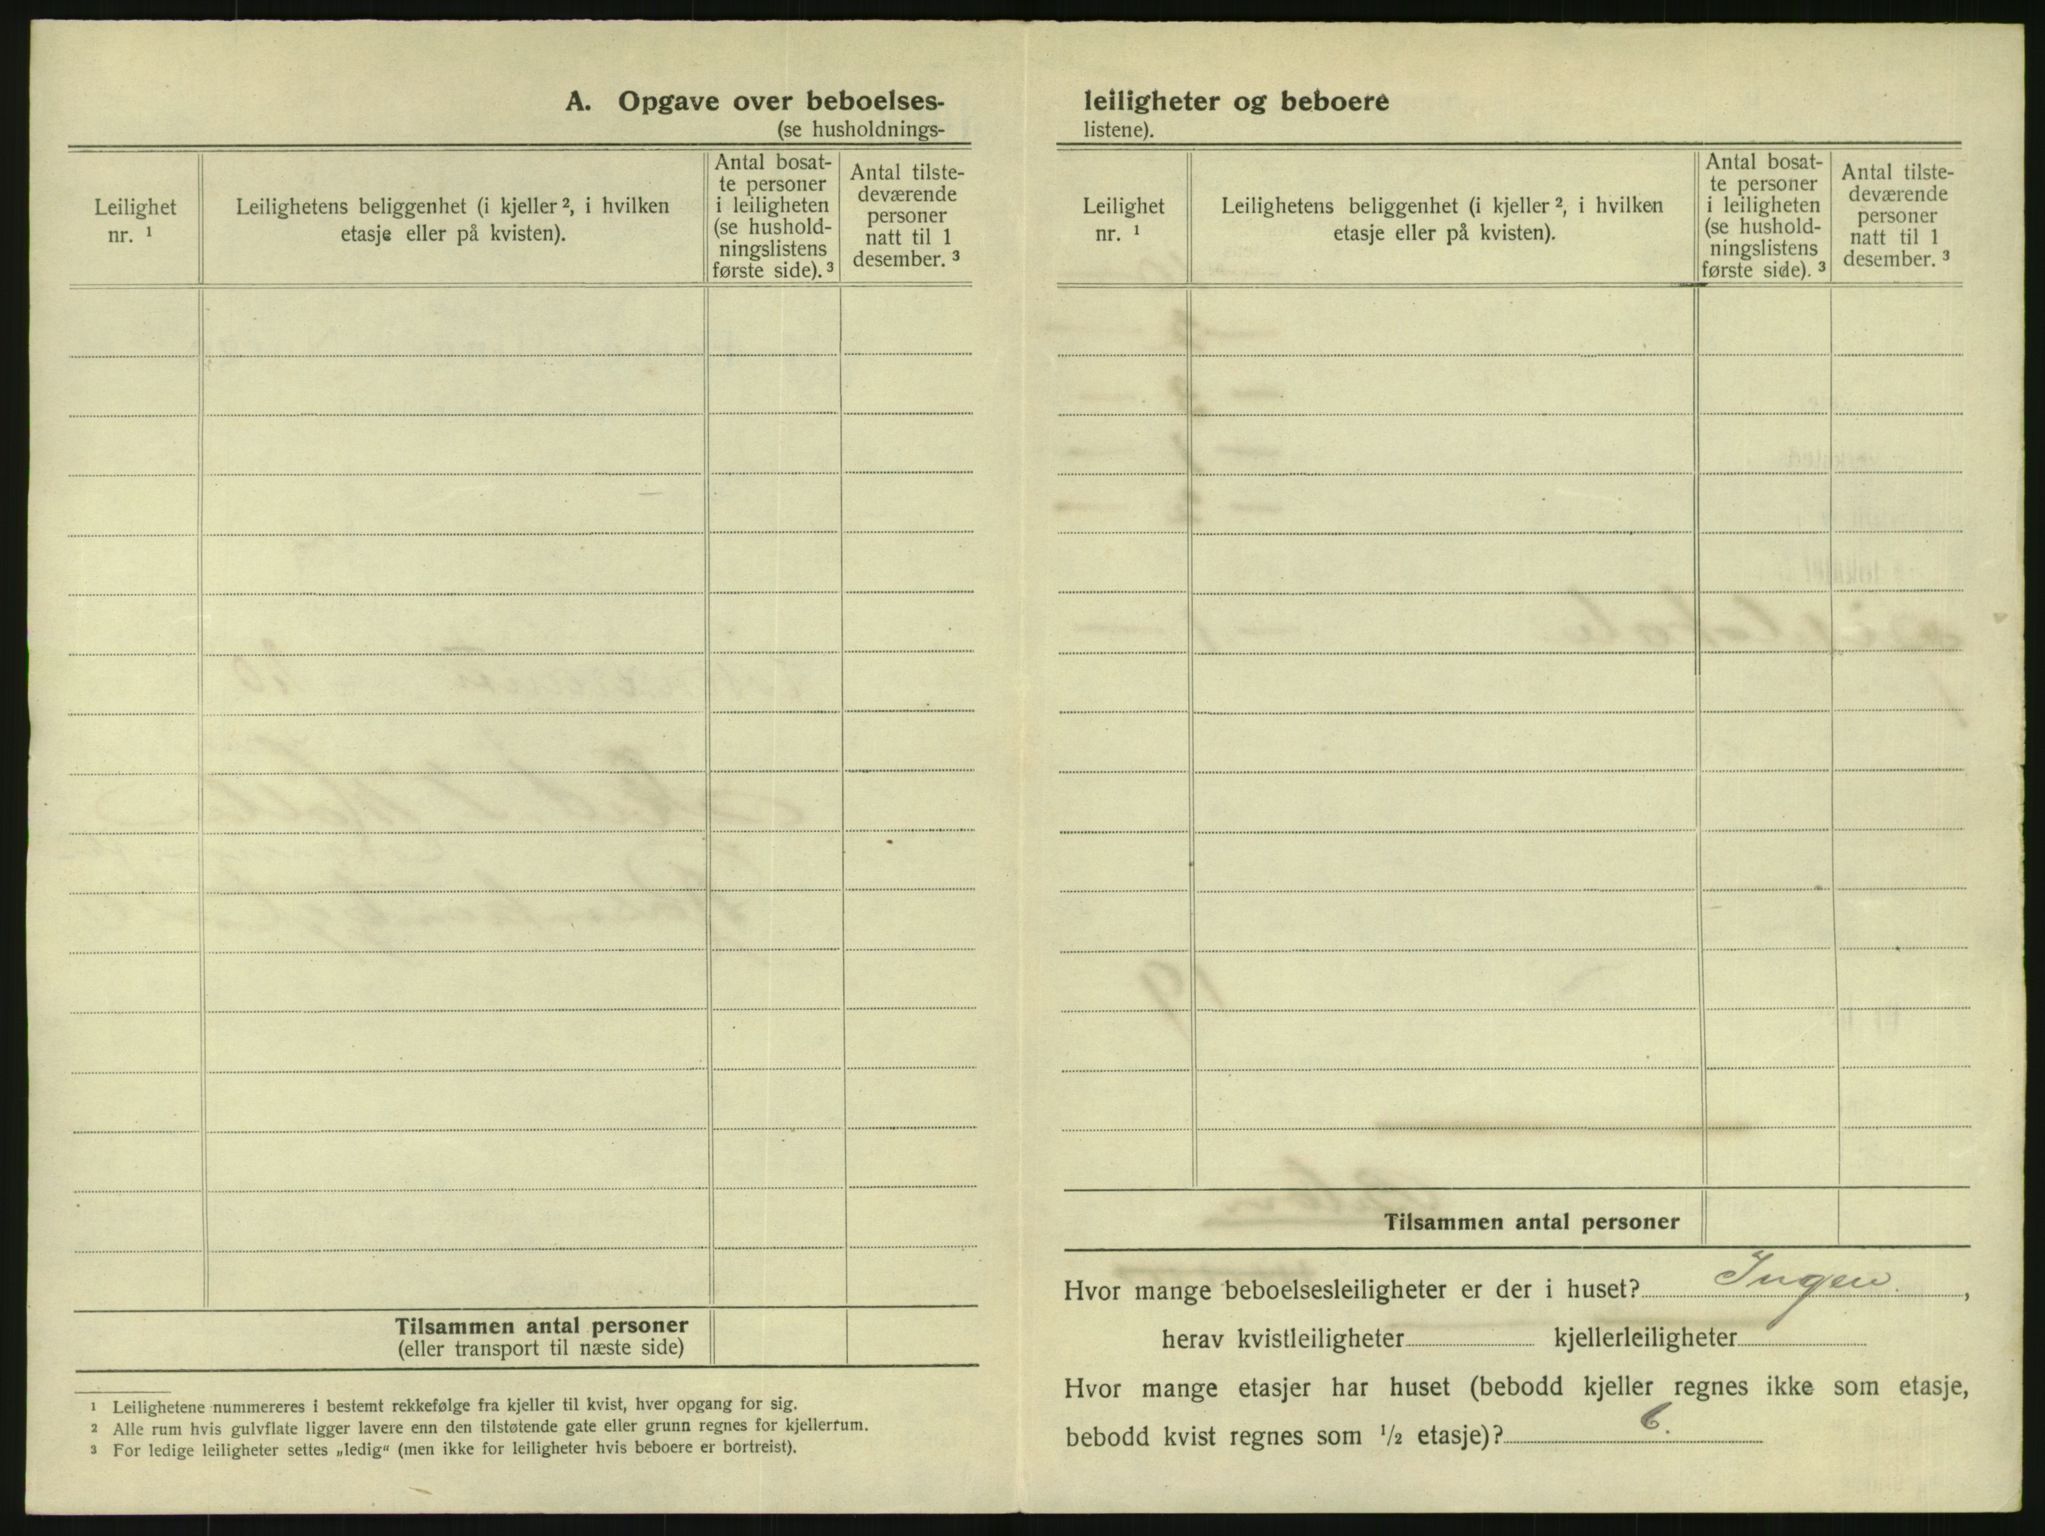 A. Opgave over beboelses-
(se husholdnings-
Leilighet
nr. ¹
Leilighetens beliggenhet (i kjeller ², i hvilken
etasje eller på kvisten).
Antal bosat-
te personer
i leiligheten
(se hushold-
ningslistens
første side). ³
Antal tilste-
deværende
personer
natt til 1
desember. ³
Tilsammen antal personer
(eller transport til næste side)
¹ Leilighetene nummereres i bestemt rekkefølge fra kjeller til kvist, hver opgang for sig.
² Alle rum hvis gulvflate ligger lavere enn den tilstøtende gate eller grunn regnes for kjellerrum.
³ For ledige leiligheter settes „ledig“ (men ikke for leiligheter hvis beboere er bortreist).
leiligheter og beboere
listene).
Leilighet
nr. ¹
Leilighetens beliggenhet (i kjeller ², i hvilken
etasje eller på kvisten).
Antal bosat-
te personer
i leiligheten
(se hushold-
ningslistens
første side). ³
Antal tilste-
deværende
personer
natt til 1
desember. ³
Tilsammen antal personer
Hvor mange beboelsesleiligheter er der i huset? Ingen.,
herav kvistleiligheter kjellerleiligheter
Hvor mange etasjer har huset (bebodd kjeller regnes ikke som etasje,
bebodd kvist regnes som ½ etasje)? 6.